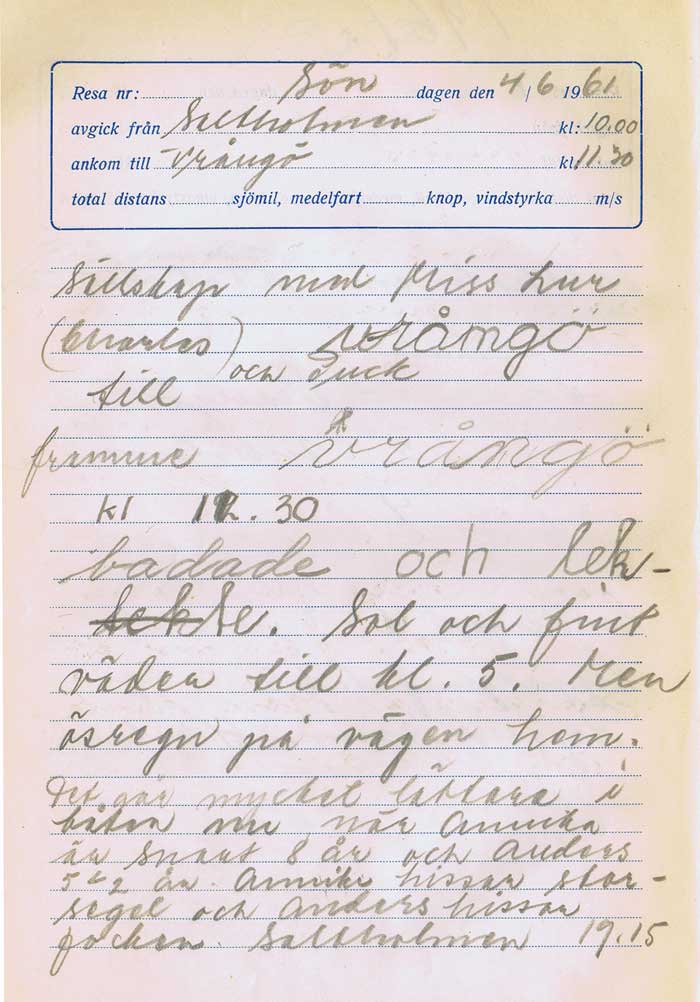 Resa nr: Sön dagen den 4/6 1961
avgick från Saltholmen kl: 10.00
ankom till Vrångö kl. 11.30
total distans sjömil, medelfart knop, vindstyrka m/s
Sällskap med Miss Lur
(Charles) Vrångö
och Puck
till
framme Vrångö
kl 12.30
badade och lek-
te. Sol och fint
väder till kl. 5. Men
ösregn på vägen hem.
Det går mycket lättare i
båten nu när Annika
är snart 8 år och Anders
5 1/2 år. Annika hissar stor-
segel och Anders hissar
focken. Saltholmen 19.15